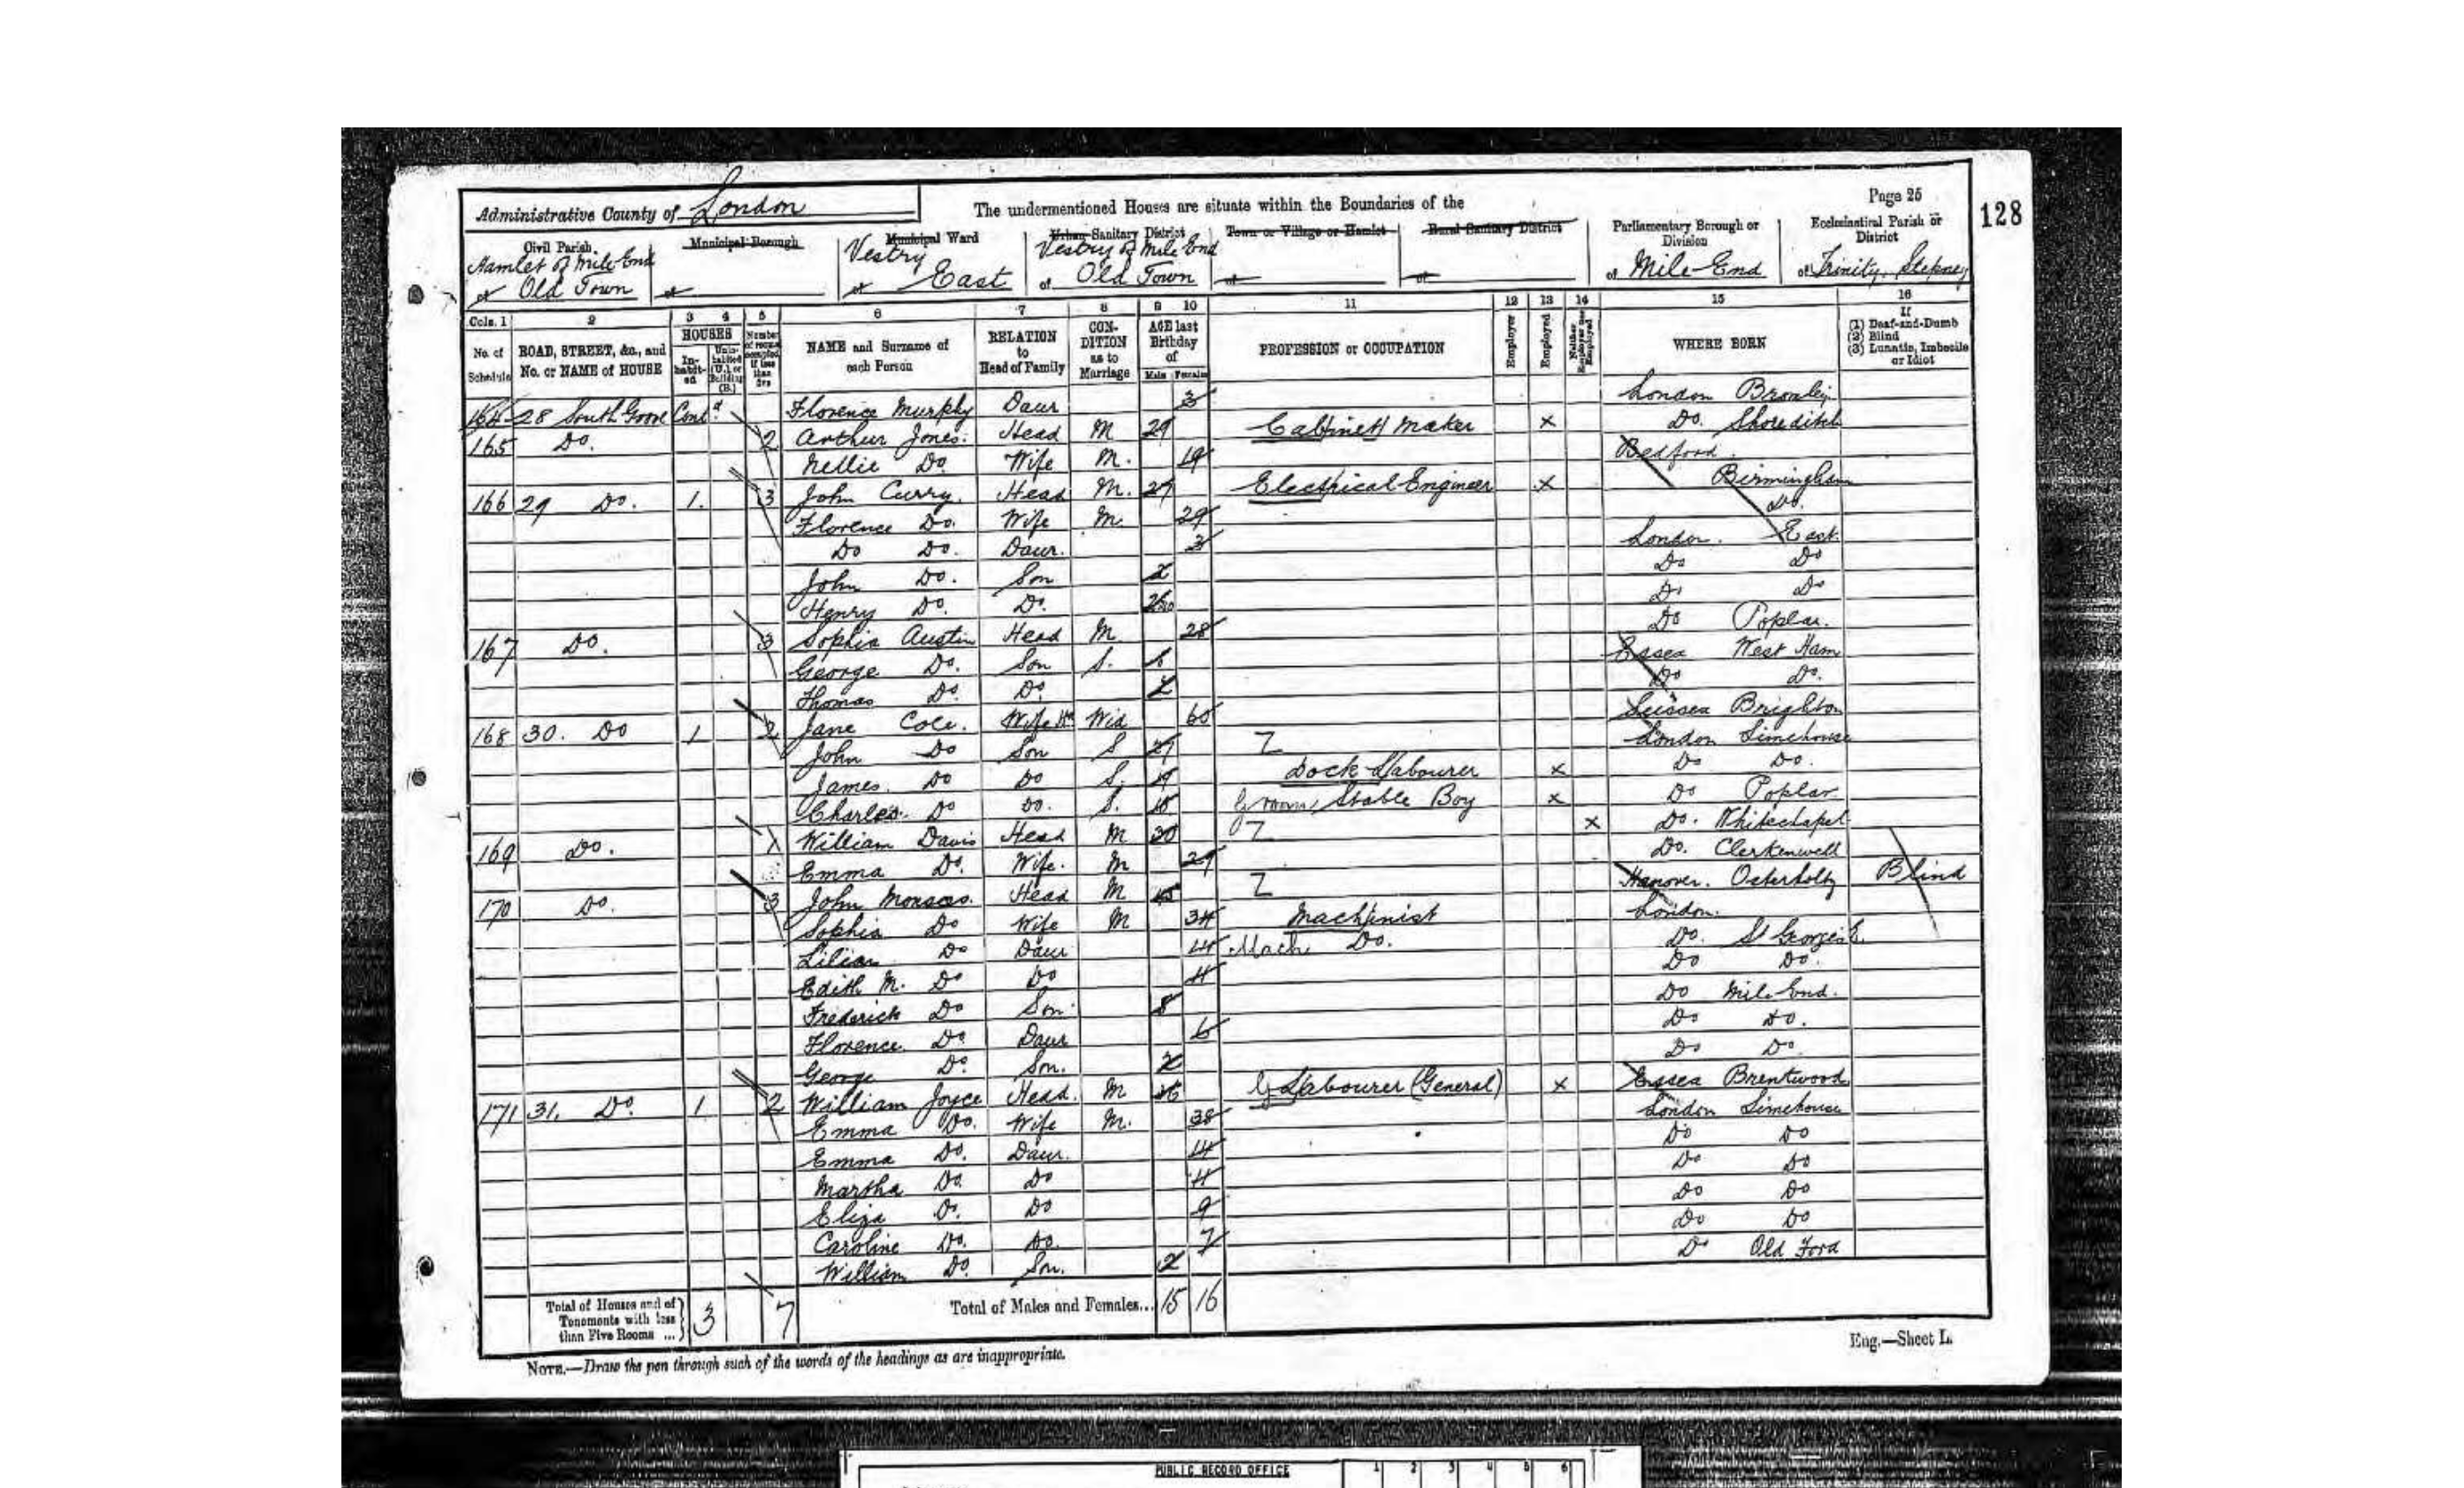 Page 25
128
Administrative County of London
The undermentioned Houses are situate within the Boundaries of the
Civil Parish of Hamlet of Mile End Old Town
Municipal Borough of
Municipal Ward of Vestry East
Urban Sanitary District of Vestry of Mile End Old Town
Town or Village or Hamlet of
Rural Sanitary District of
Parliamentary Borough or Division of Mile End
Ecclesiastical Parish or District of Trinity, Stepney
Cols. 1 2 3 4 5 6 7 8 9 10 11 12 13 14 15 16
No. of Schedule
ROAD, STREET, &c., and No. or NAME of HOUSE
HOUSES
Inhabited
Uninhabited (U.), or Building (B.)
Number of rooms occupied if less than five
NAME and Surname of each Person
RELATION to Head of Family
CONDITION as to Marriage
AGE last Birthday of
Males Females
PROFESSION or OCCUPATION
Employer
Employed
Neither Employer nor Employed
WHERE BORN
If (1) Deaf-and-Dumb (2) Blind (3) Lunatic, Imbecile or Idiot
164 28 South Grove Contd Florence Murphy Daur 3 London Bromley
165 Do. 2 Arthur Jones Head M 29 Cabinet Maker x Do. Shoreditch
Nellie Do Wife M. 19 Bedford
166 29 Do. 1. 3 John Curry Head M. 27 Electrical Engineer x Birmingham
Florence Do. Wife M. 29 Do.
Do Do. Daur. 3 London East
John Do. Son 2 Do Do
Henry Do. Do. Do Do
167 Do. 3 Sophia Austin Head M 28 Do Poplar.
George Do. Son S. Essex West Ham
Thomas Do. Do. 2 Do Do.
168 30. Do 1 2 Jane Cole. Wife Hd Wid 60 Sussex Brighton
John Do Son S 27 London Limehouse
James. Do Do S. 19 Dock Labourer x Do Do.
Charles Do Do. S. 15 Groom, Stable Boy x Do Poplar
169 Do. 1 William Davis Head M 30 x Do. Whitechapel
Emma Do. Wife. M 29 Do. Clerkenwell
170 Do. 3 John Head M 45 Hanover. Osterholtz Blind
Sophia Do Wife M 34 Machinist London.
Lilian Do Daur 14 Mach Do. Do. St Georges E.
Edith M. Do Do 11 Do Do.
Frederick Do Son 8 Do Mile End.
Florence. Do. Daur 6 Do Do.
George Do. Son. 2 Do Do
171 31. Do. 1 2 William Joyce Head. M 36 G Labourer (General) x Essex Brentwood
Emma Do. Wife M. 38 London Limehouse
Emma Do. Daur. 14 Do Do
Martha Do. Do 11 Do Do
Eliza Do. Do 9 Do Do
Caroline Do. Do. 7 Do Do
William Do. Son. 2 Do Old Ford
Total of Houses and of Tenements with less than Five Rooms ... 3 7
Total of Males and Females... 15 16
NOTE.—Draw the pen through such of the words of the headings as are inappropriate.
Eng.—Sheet L.
PUBLIC RECORD OFFICE
1 2 3 4 5 6